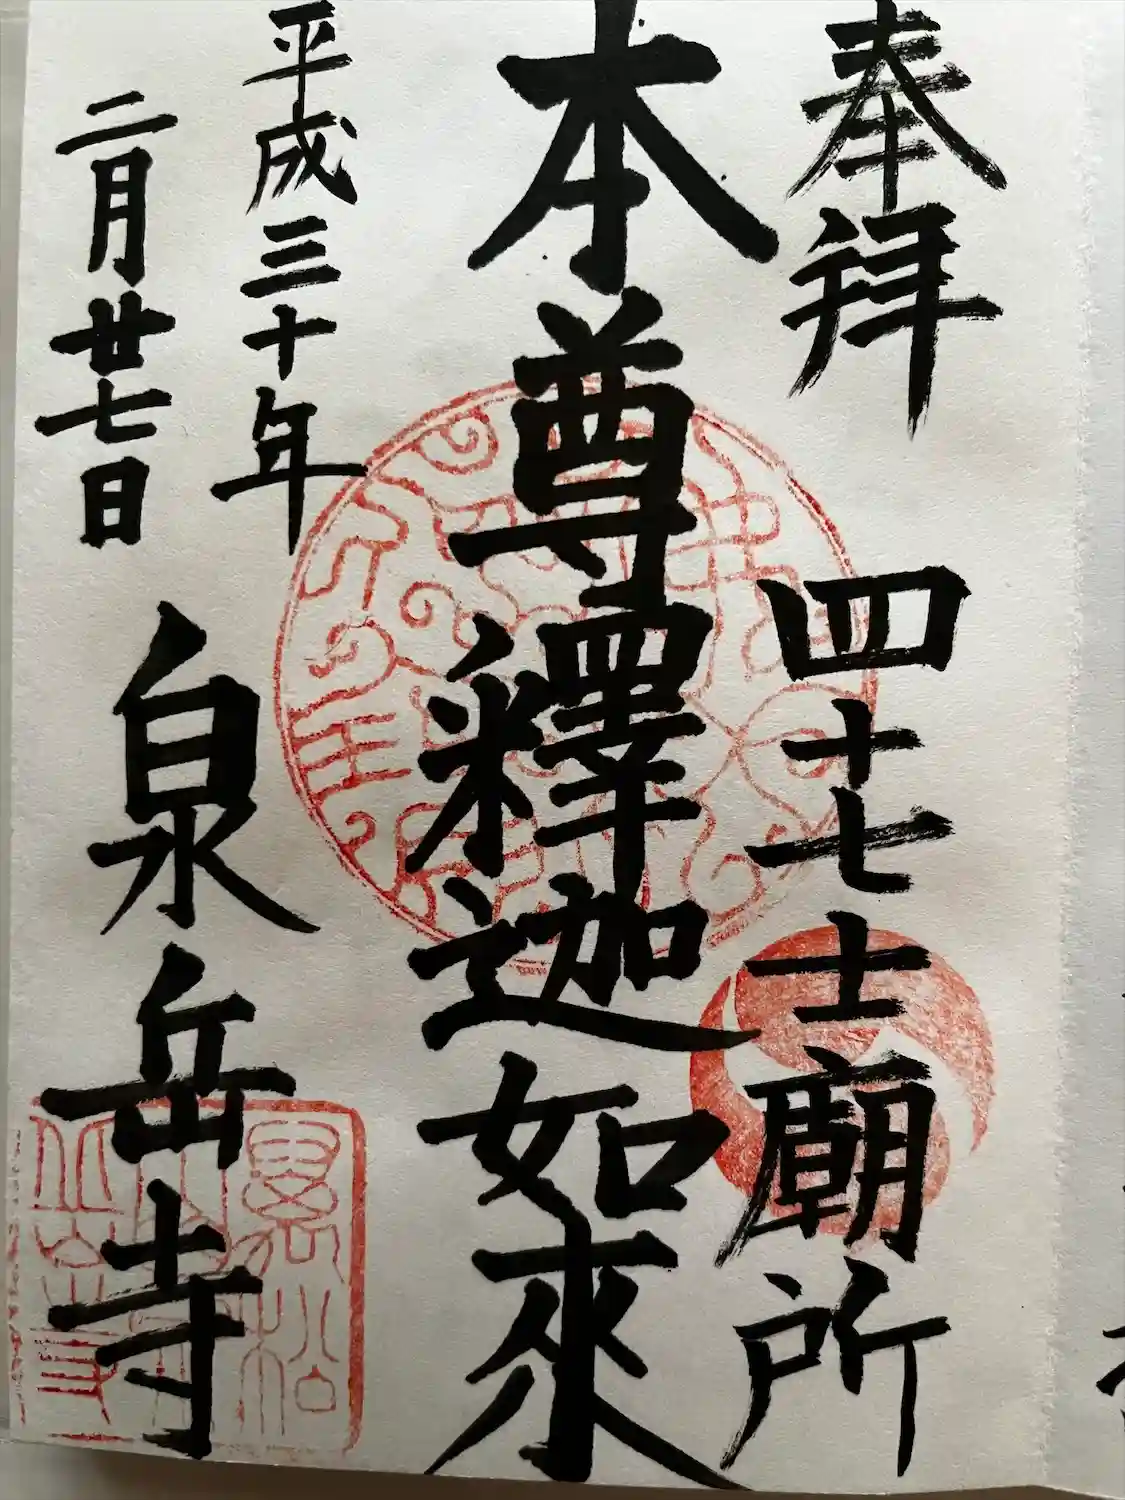 奉拝
四十七士廟所
本尊釋迦如來
平成三十年
二月廿七日
泉岳寺